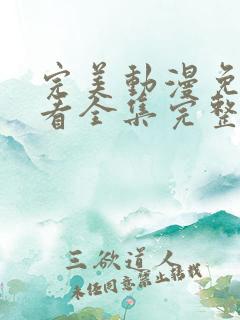 完美動漫免
看全集完整
三欲道人
未经同意禁止转载